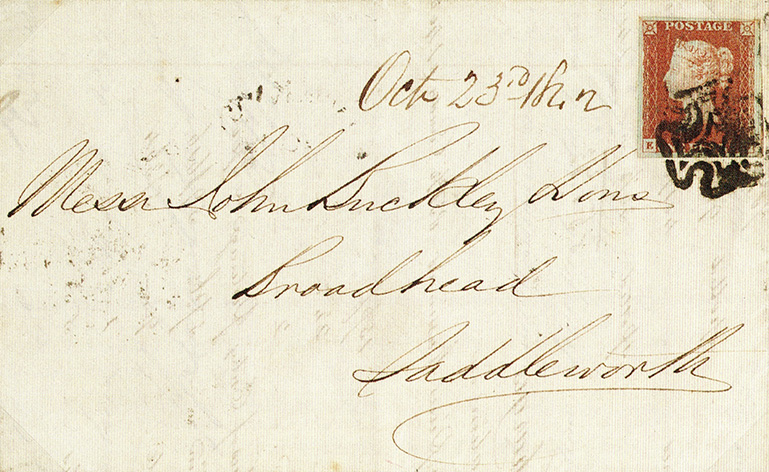 POSTAGE
Oct 23rd 1842
E
Messrs John Buckley & Sons
Broadhead
Saddleworth